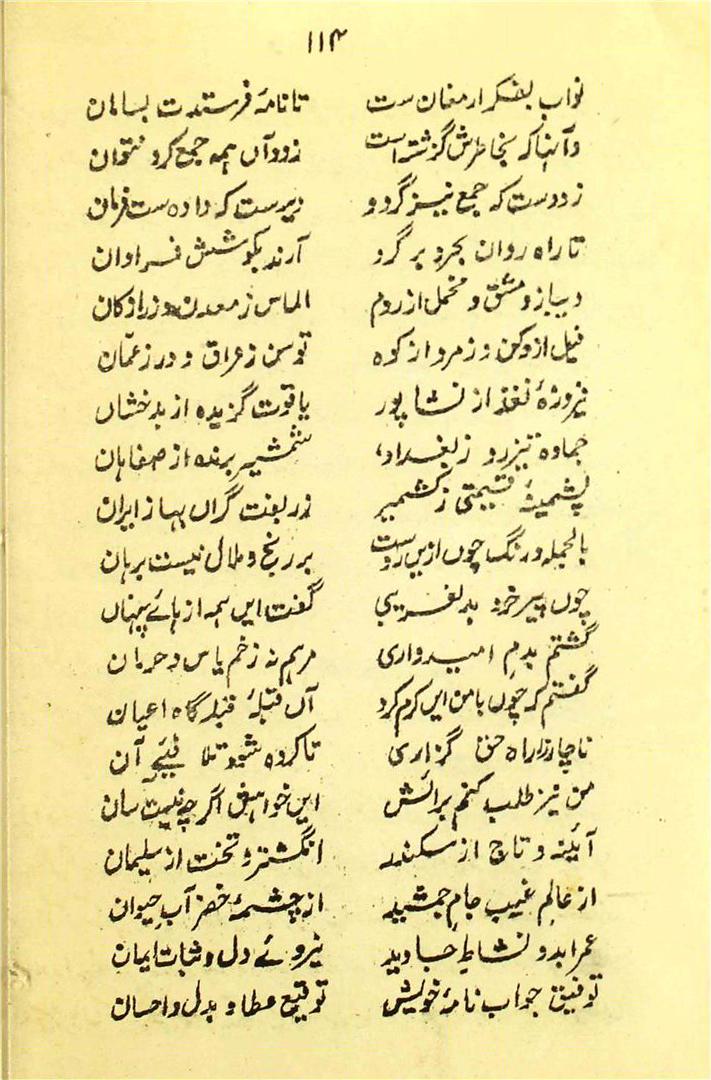 ۱۱۴
نواب بفکر ارمغان ست تا نامۂ فرستدت بسامان
و آنہا کہ بخاطرش گزشتہ است زود آں ہمہ جمع کرد نتوان
زودست کہ جمع نیز گردد دیرست کہ دادہ ست فرمان
تا راہ روان بحر و بر گرد آرند بکوشش فراوان
دیبا ز دمشق و مخمل از روم الماس ز معدن و زر از کان
فیل از دکن و زمرد از کوہ توسن ز عراق و در ز عمّان
فیروزۂ نغز از نشاپور یاقوت گزیدہ از بدخشاں
جمازہ تیزرو ز بغداد، شمشیر برندہ از صفاہان
پشمینۂ قیمتی ز کشمیر زر بفت گراں بہا ز ایران
بالجملہ درنگ چوں ازیں روست بر رنج و ملال نیست برہان
چوں پیر خرد بدلفریبی گفت ایں ہمہ از ہائے پنہاں
گشتم بدم امیدواری مرہم نہ زخم یاس و حرمان
گفتم کہ چوں با من ایں کرم کرد آں قبلۂ قبلہ گاہ اعیان
ناچار ز راہ حق گزاری تا کردہ شود تلافئے آن
من نیز طلب کنم برائش ایں خواہش اگرچہ نیست سان
آئنہ و تاج از سکندر انگشتر و تخت از سلیمان
از عالم غیب جام جمشید از چشمۂ خضر آب حیوان
عمر ابد و نشاط جاوید نیروئے دل و ثبات ایمان
توفیق جواب نامۂ خویش توقیع عطا و بذل و احسان